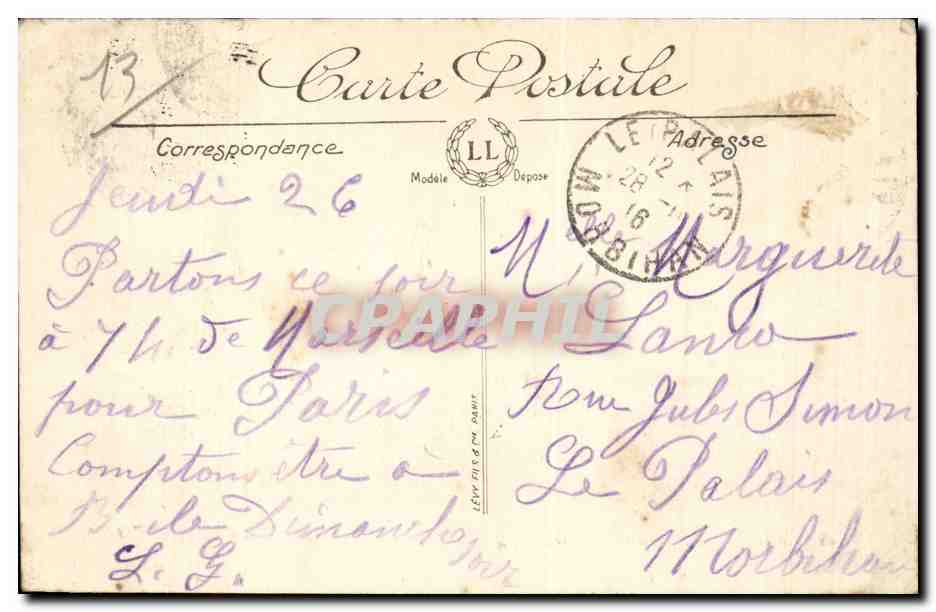 13
Carte Postale
Correspondance
LL
Modèle Déposé
Adresse
LE PALAIS
12
28
16
MORBIHAN
Jeudi 26
Partons ce soir
à 7 h. de Marseille
pour Paris
Comptons être à
B. ile Dimanche
soir
L. G.
CPAPHIL
LÉVY FILS & Cie PARIS
Marguerite
Lanco
Rue Jules Simon
Le Palais
Morbihan